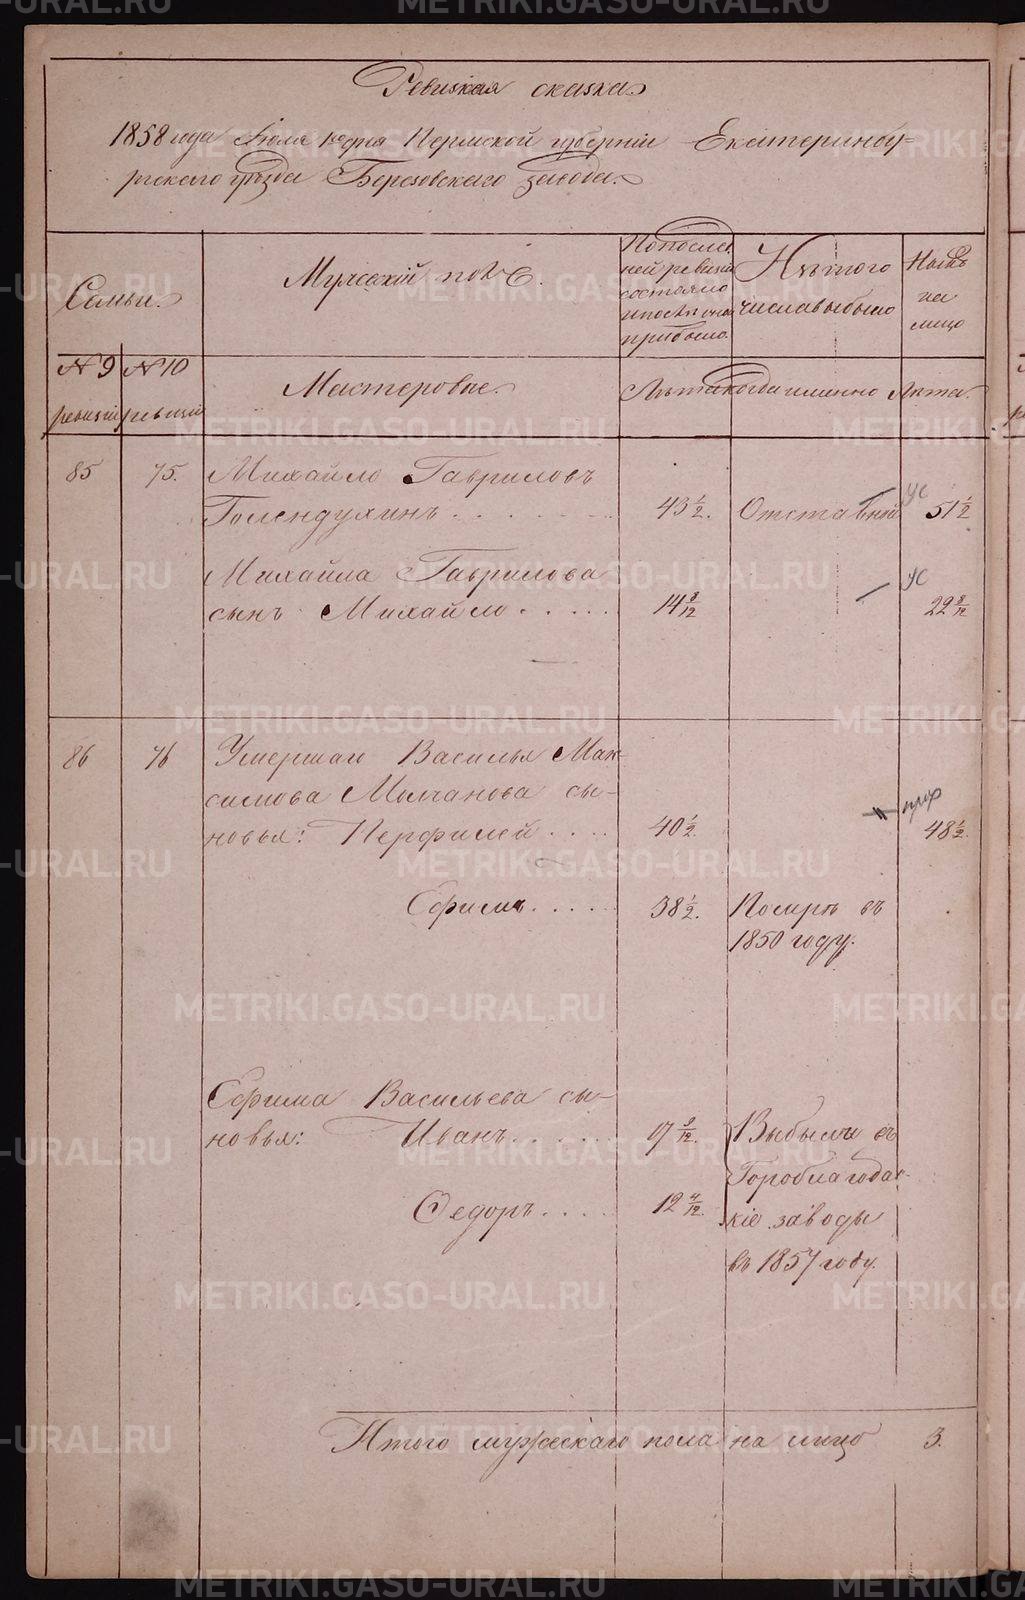 Ревизкая сказка
1858 года Июля 1го дня Пермской губерніи Екатеринбу-
ргскаго уѣзда Березовскаго завода.
Семьи.
Мужескій полъ.
По послѣд
ней ревизіи
состояло
и послѣ оной
прибыло.
Изъ того
числа выбыло
Нынѣ
на
лицо
№ 9
ревизіи
№ 10
ревизіи
Мастеровые.
Лѣта
когда именно
Лѣта.
85 75. Михайло Гавриловъ
Голендухинъ 43 1/2. Отставной ус 51 1/2
Михайла Гаврилова
сынъ Михайло 14 8/12 ус 22 8/12
86 76 Умершаго Василья Мак-
симова Молчанова сы-
новья: Перфилей 40 1/2. 48 1/2.
Ефимъ 38 1/2. Померъ въ
1850 году.
Ефима Васильева сы-
новья: Иванъ 17 9/12. Выбыли въ
Гороблагодат-
Федоръ 12 4/12. скіе заводы
въ 1857 году.
Итого мужескаго пола на лицо 3.
METRIKI.GASO-URAL.RU